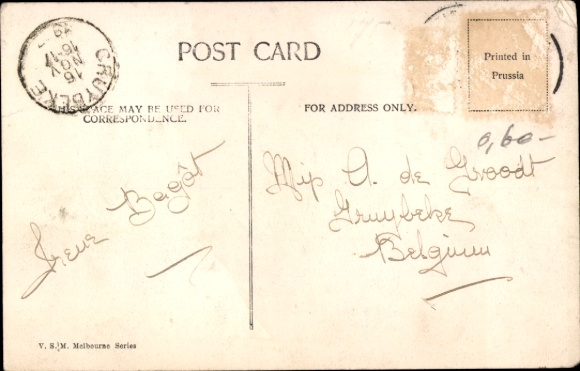 CRUYBEKE
16
NOV
16-17
POST CARD
Printed in
Prussia
THIS SPACE MAY BE USED FOR
CORRESPONDENCE.
FOR ADDRESS ONLY.
0,60-
Irene Bagôt
A. de Groodt
Gruybeke
Belgium
V. S. M. Melbourne Series